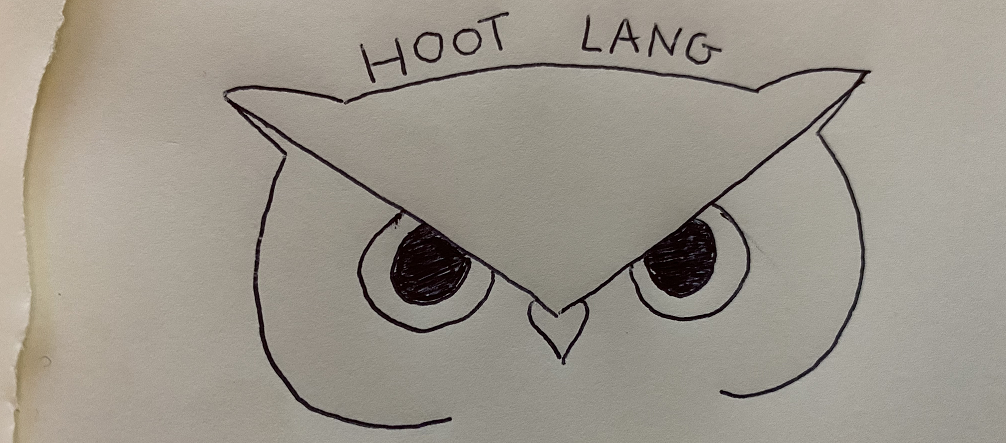 HOOT LANG